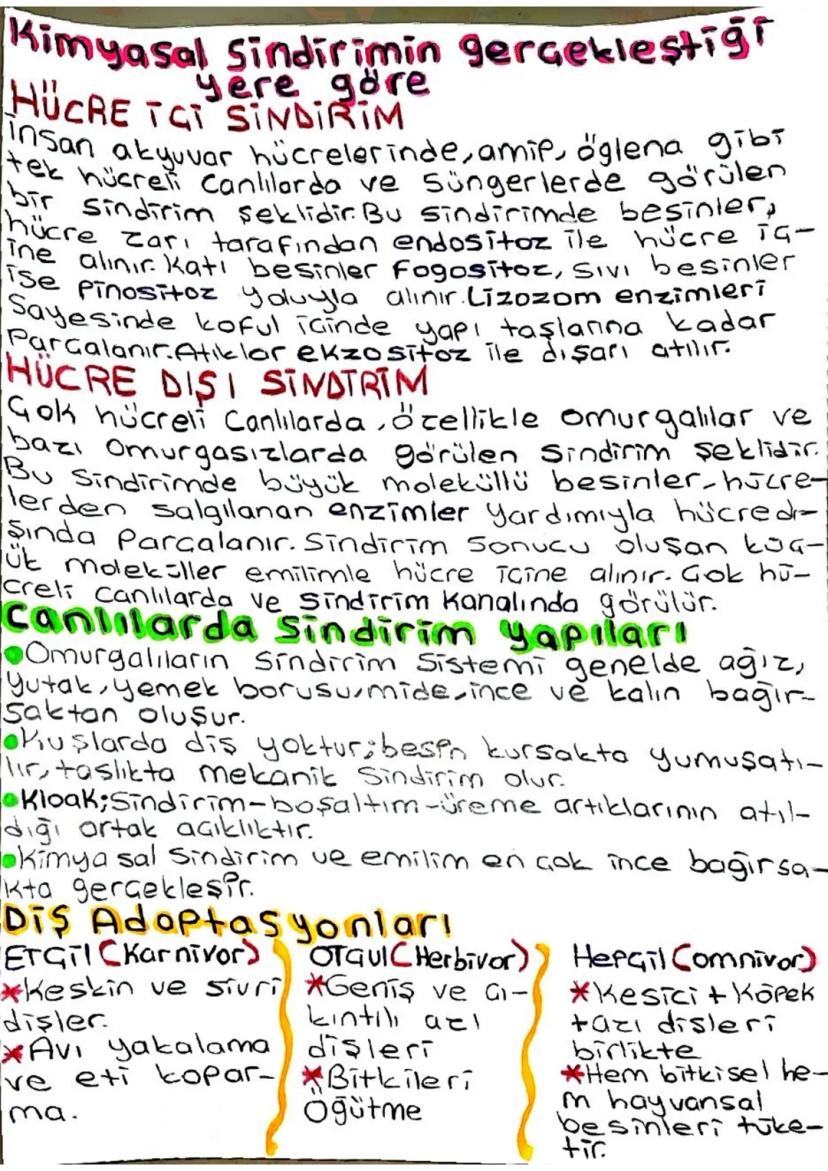 Kimyasal Sindirimin gerçekleştiği
yere göre
HÜCRE İÇİ SİNDİRİM
İnsan akyuvar hücrelerinde, amip, öglena gibi
tek hücreli canlılarda ve süngerlerde görülen
bir sindirim şeklidir. Bu sindirimde besinler,
hücre zarı tarafından endositoz ile hücre iç-
ine alınır. Katı besinler Fogositoz, sıvı besinler
ise Pinositoz yoluyla alınır. Lizozom enzimleri
Sayesinde koful içinde yapı taşlarına kadar
Parçalanır. Atıklar ekzositoz ile dışarı atılır.
HÜCRE DIŞI SİNDİRİM
Çok hücreli Canlılarda, özellikle omurgalılar ve
bazı omurgasızlarda görülen sindirim şeklidir.
Bu sindirimde büyük moleküllü besinler, hücre-
lerden salgılanan enzimler yardımıyla hücre dı-
şında parçalanır. Sindirim sonucu oluşan küç-
ük moleküller emilimle hücre içine alınır. Çok hü-
creli canlılarda ve sindirim kanalında görülür.
Canlılarda Sindirim yapıları
•Omurgalıların sindirim sistemi genelde ağız,
yutak, yemek borusu, mide, ince ve kalın bağır-
saktan oluşur.
•Kuşlarda diş yoktur; besin kursakta yumuşatı-
lır, taşlıkta mekanik sindirim olur.
•Kloak; Sindirim-boşaltım-üreme artıklarının atıl-
dığı ortak açıklıktır.
•Kimyasal sindirim ve emilim en çok ince bağırsa-
kta gerçekleşir.
Diş Adaptasyonları
ETÇİL (Karnivor)
*Keskin ve sivri
dişler.
*Avı yakalama
ve eti kopar-
ma.
OTÇUL (Herbivor)
*Geniş ve çı-
kıntılı azı
dişleri
*Bitkileri
Öğütme
HEPÇİL (Omnivor)
*Kesici + Köpek
+azı dişleri
birlikte
*Hem bitkisel he-
m hayvansal
besinleri tüke-
tir.